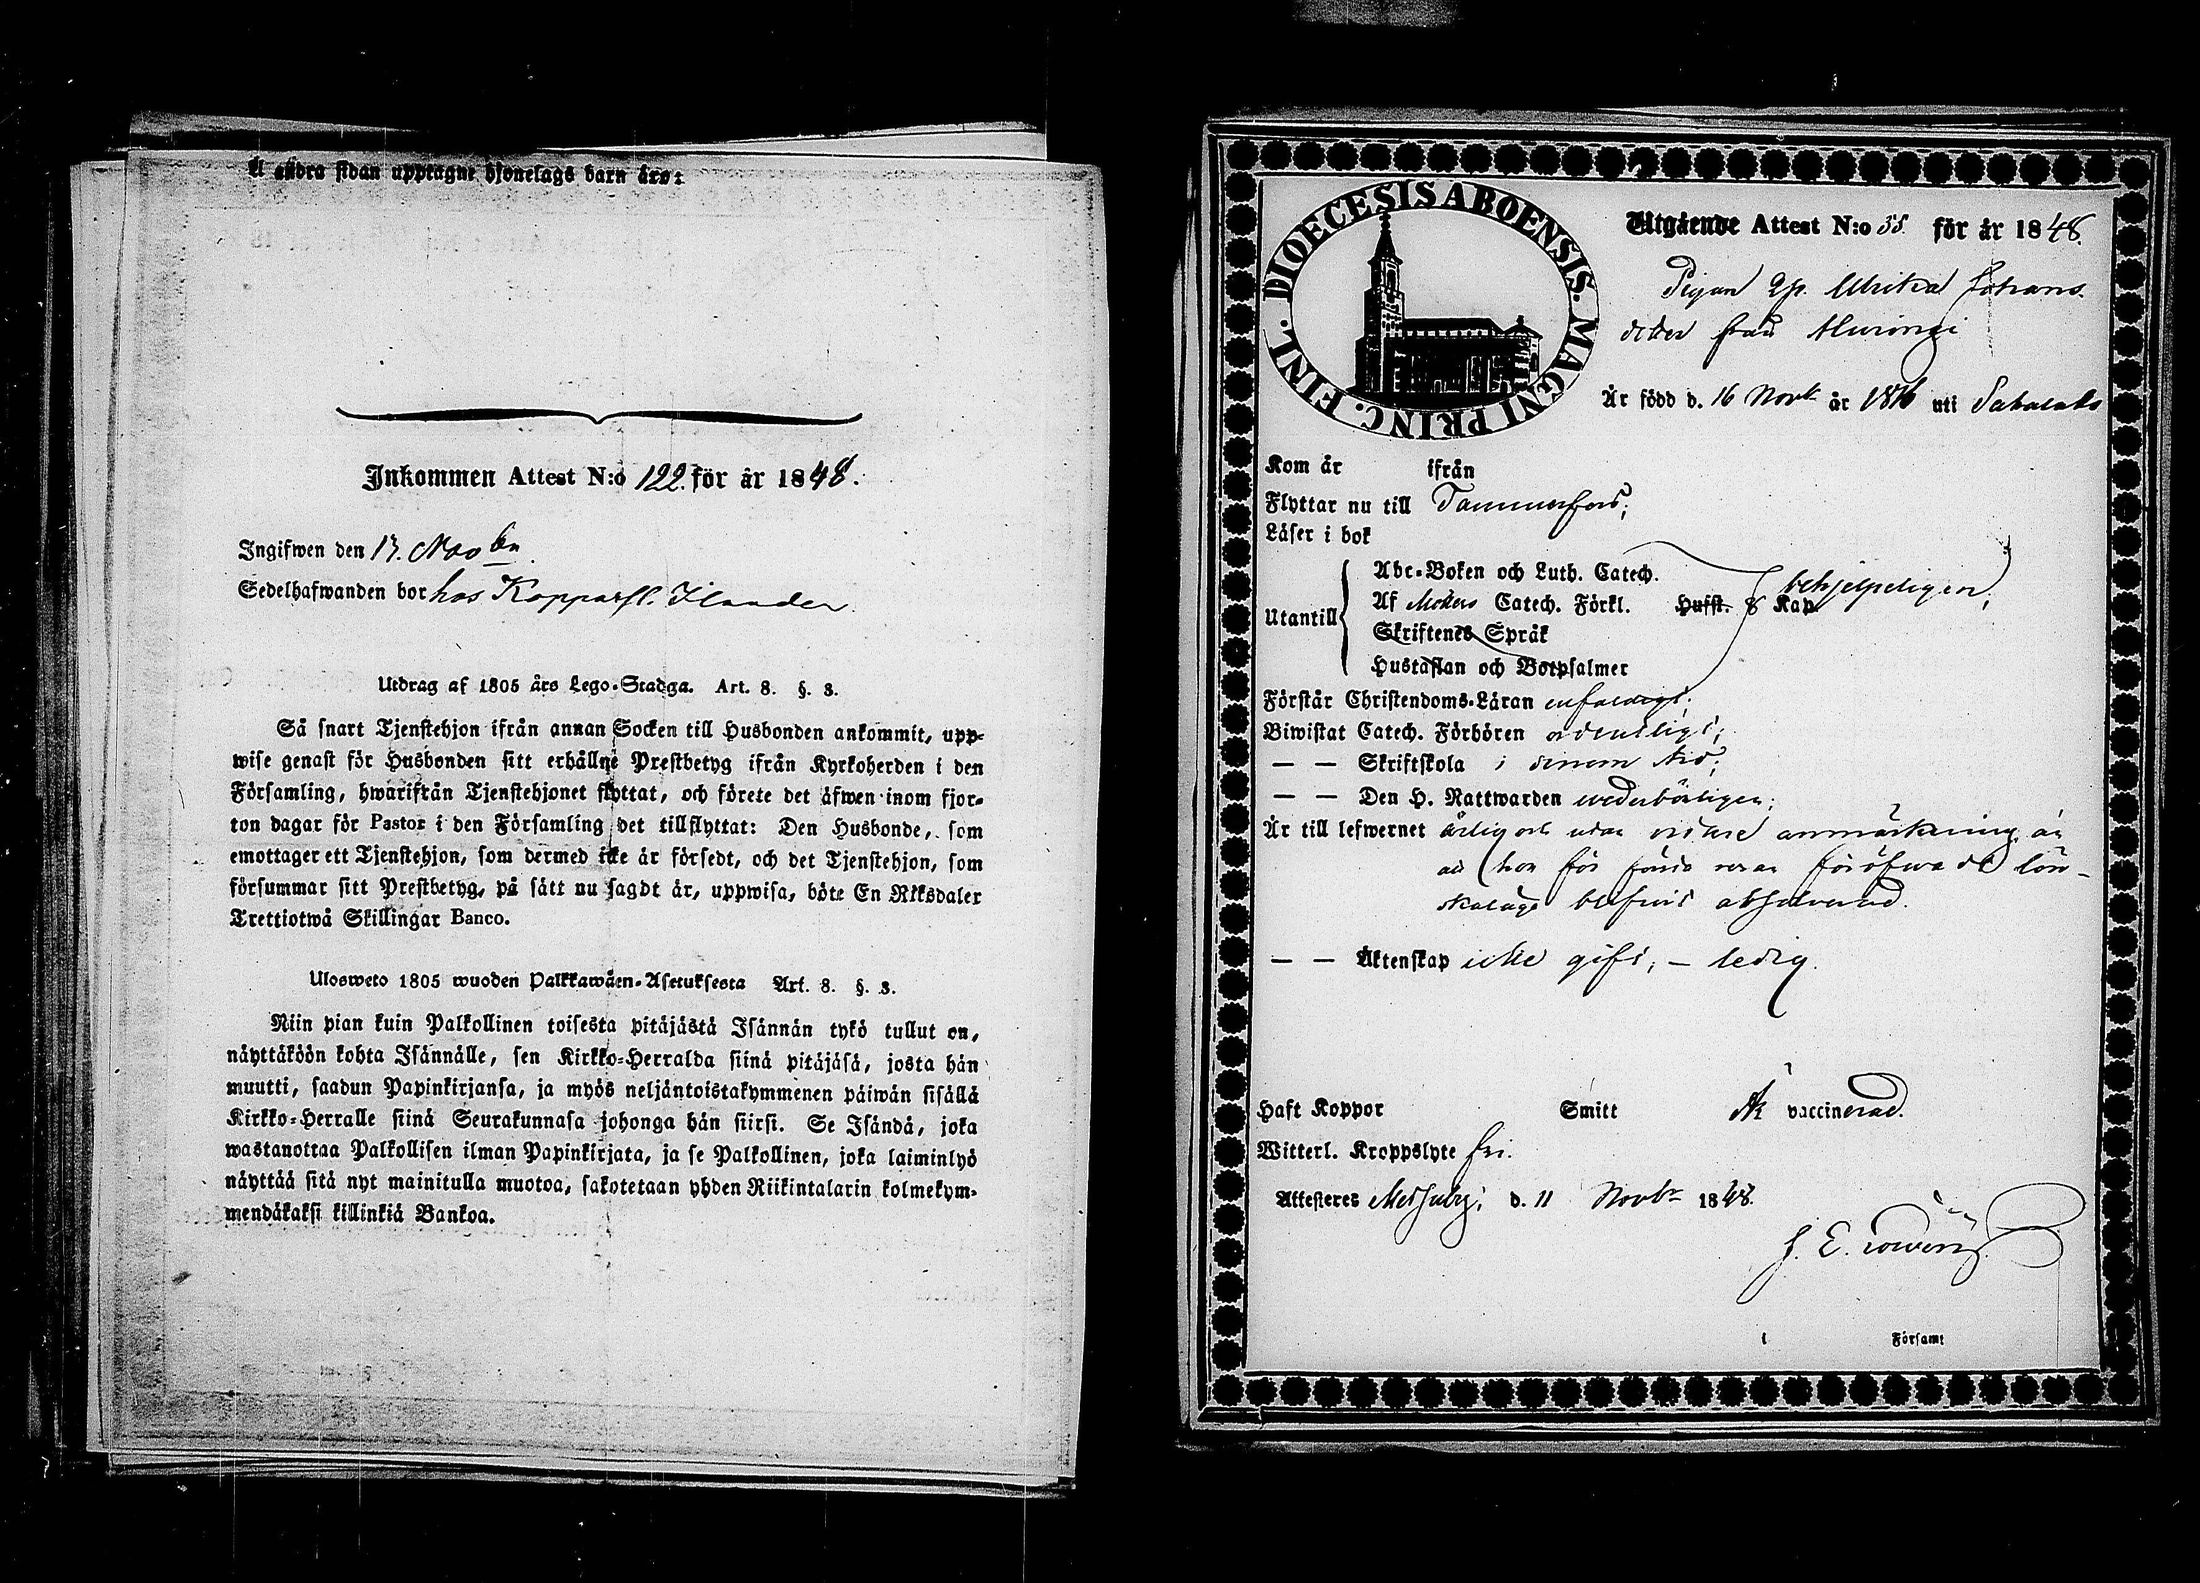 å andra sidan upptagne hjonelags barn äro:
Inkommen Attest N:o 122. för år 1848.
Ingifwen den 13. Novbr.
Sedelhafwanden bor hos Kopparsl.
Utdrag af 1805 års Lego-Stadga. Art. 8. §. 3.
Så snart Tjenstehjon ifrån annan Socken till Husbonden ankommit, upp-
wise genast för Husbonden sitt erhållne Prestbetyg ifrån Kyrkoherden i den
Församling, hwarifrån Tjenstehjonet flyttat, och förete det äfwen inom fjor-
ton dagar för Pastor i den Församling det tillflyttat: Den Husbonde, som
emottager ett Tjenstehjon, som dermed icke är försedt, och det Tjenstehjon, som
försummar sitt Prestbetyg, på sätt nu sagdt är, uppwisa, böte En Riksdaler
Trettiotwå Skillingar Banco.
Ulosweto 1805 wuoden Palkkawäen-Asetuksesta Art. 8. §. 3.
Niin pian kuin Palkollinen toisesta pitäjästä Isännän tykö tullut on,
näyttäköön kohta Isännälle, sen Kirkko-Herralda siinä pitäjäsä, josta hän
muutti, saadun Papinkirjansa, ja myös neljäntoistakymmenen päiwän sisällä
Kirkko-Herralle siinä Seurakunnasa johonga hän siirsi. Se Isändä, joka
wastanottaa Palkollisen ilman Papinkirjata, ja se Palkollinen, joka laiminlyö
näyttää sitä nyt mainitulla muotoa, sakotetaan yhden Riikintalarin kolmekym-
mendäkaksi killinkiä Bankoa.
DIOECESIS ABOENSIS. MAGNI PRINC. FINL.
Utgående Attest N:o 35. för år 1848.
Pigan Ulrika Johans-
dotter från
Är född d. 16 Novbr år 1816 uti Sahalaks
Kom år ifrån
Flyttar nu till Tammerfors;
Läser i bok
Utantill
Abc-Boken och Luth. Catech.
Af Möllers Catech. Förkl. Hufst. 8 Kap. behjelpeligen;
Skriftenes Språk
Hustaflan och Botpsalmer
Förstår Christendoms-Läran enfaldigt;
Biwistat Catech. Förhören ordentligt;
— — Skriftskola i sinom tid;
— — Den H. Nattwarden wederbörligen;
Är till lefwernet ärlig och utan widare anmärkning än
att hon för första resan föröfwadt lön-
skaläge blifwit absolverad.
— — Äktenskap icke gift; — ledig.
Haft Koppor Smitt Är vaccinerad.
Witterl. Kroppslyte fri.
Attesteres Messuby; d. 11 Novbr 1848.
J. E.
i Församl